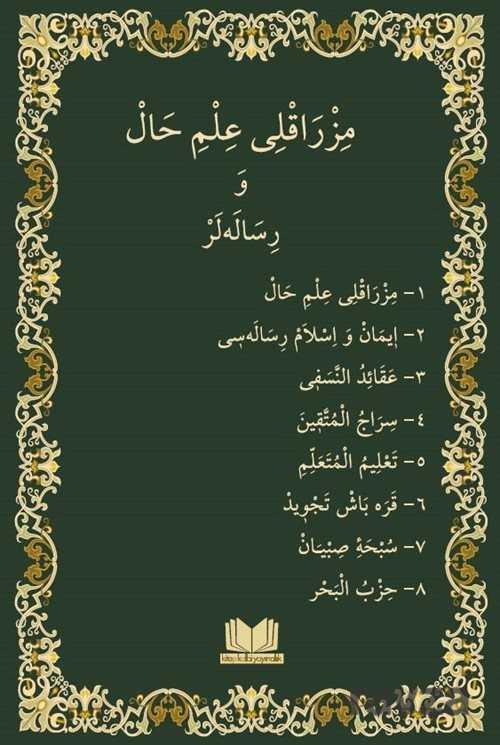 مِزْرَاقْلِى عِلْمِ حَالْ
وَ
رِسَالَه‌لَرْ
١- مِزْرَاقْلِى عِلْمِ حَالْ
٢- اِيمَانْ وَ اِسْلَامْ رِسَالَه‌سِى
٣- عَقَائِدُ النَّسَفِى
٤- سِرَاجُ الْمُتَّقِينَ
٥- تَعْلِيمُ الْمُتَعَلِّمِ
٦- قَرَه بَاشْ تَجْوِيدْ
٧- سُبْحَهٔ صِبْيَانْ
٨- حِزْبُ الْبَحْر
kitapkalbiyayıncılık